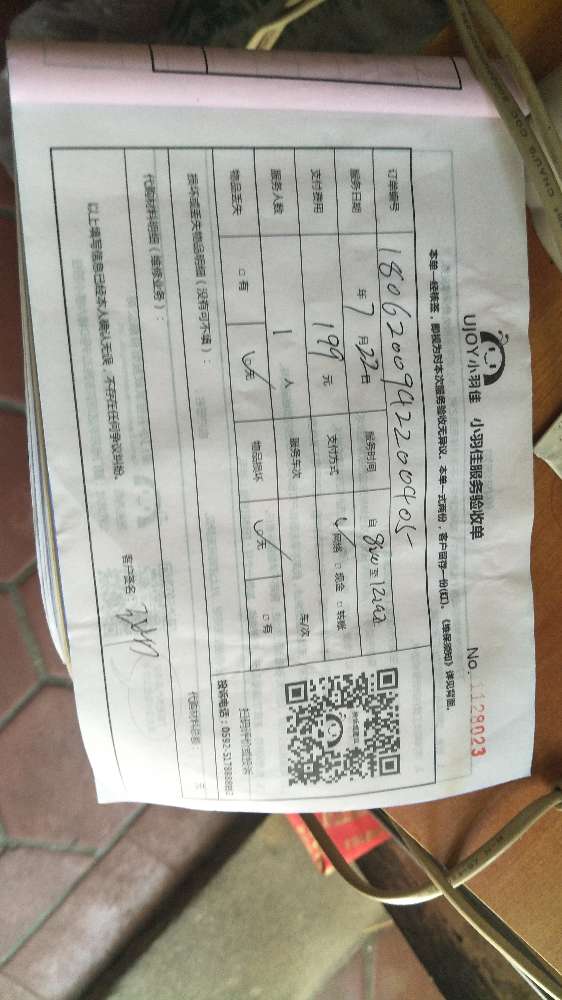 UJOY小羽佳 小羽佳服务验收单 No. 1128023
本单一经核签，即视为对本次服务验收无异议。本单一式两份，客户留存一份(红)。《维保须知》详见背面。
订单编号 1806200942200405
服务日期 年 7 月 22 日 服务时间 自 8:00 至 12:00
支付费用 199 元 支付方式 ☑网络 □现金 □转账
服务人数 1 人 服务车次 车/次
物品丢失 □有 ☑无 物品损坏 ☑无 □有
损坏或丢失物品明细（没有可不填）：
代购材料明细（维修业务）： 元
以上填写信息已经本人确认无误，不存在任何争议纠纷。
客户签名：
投诉电话：0592-5178888转2